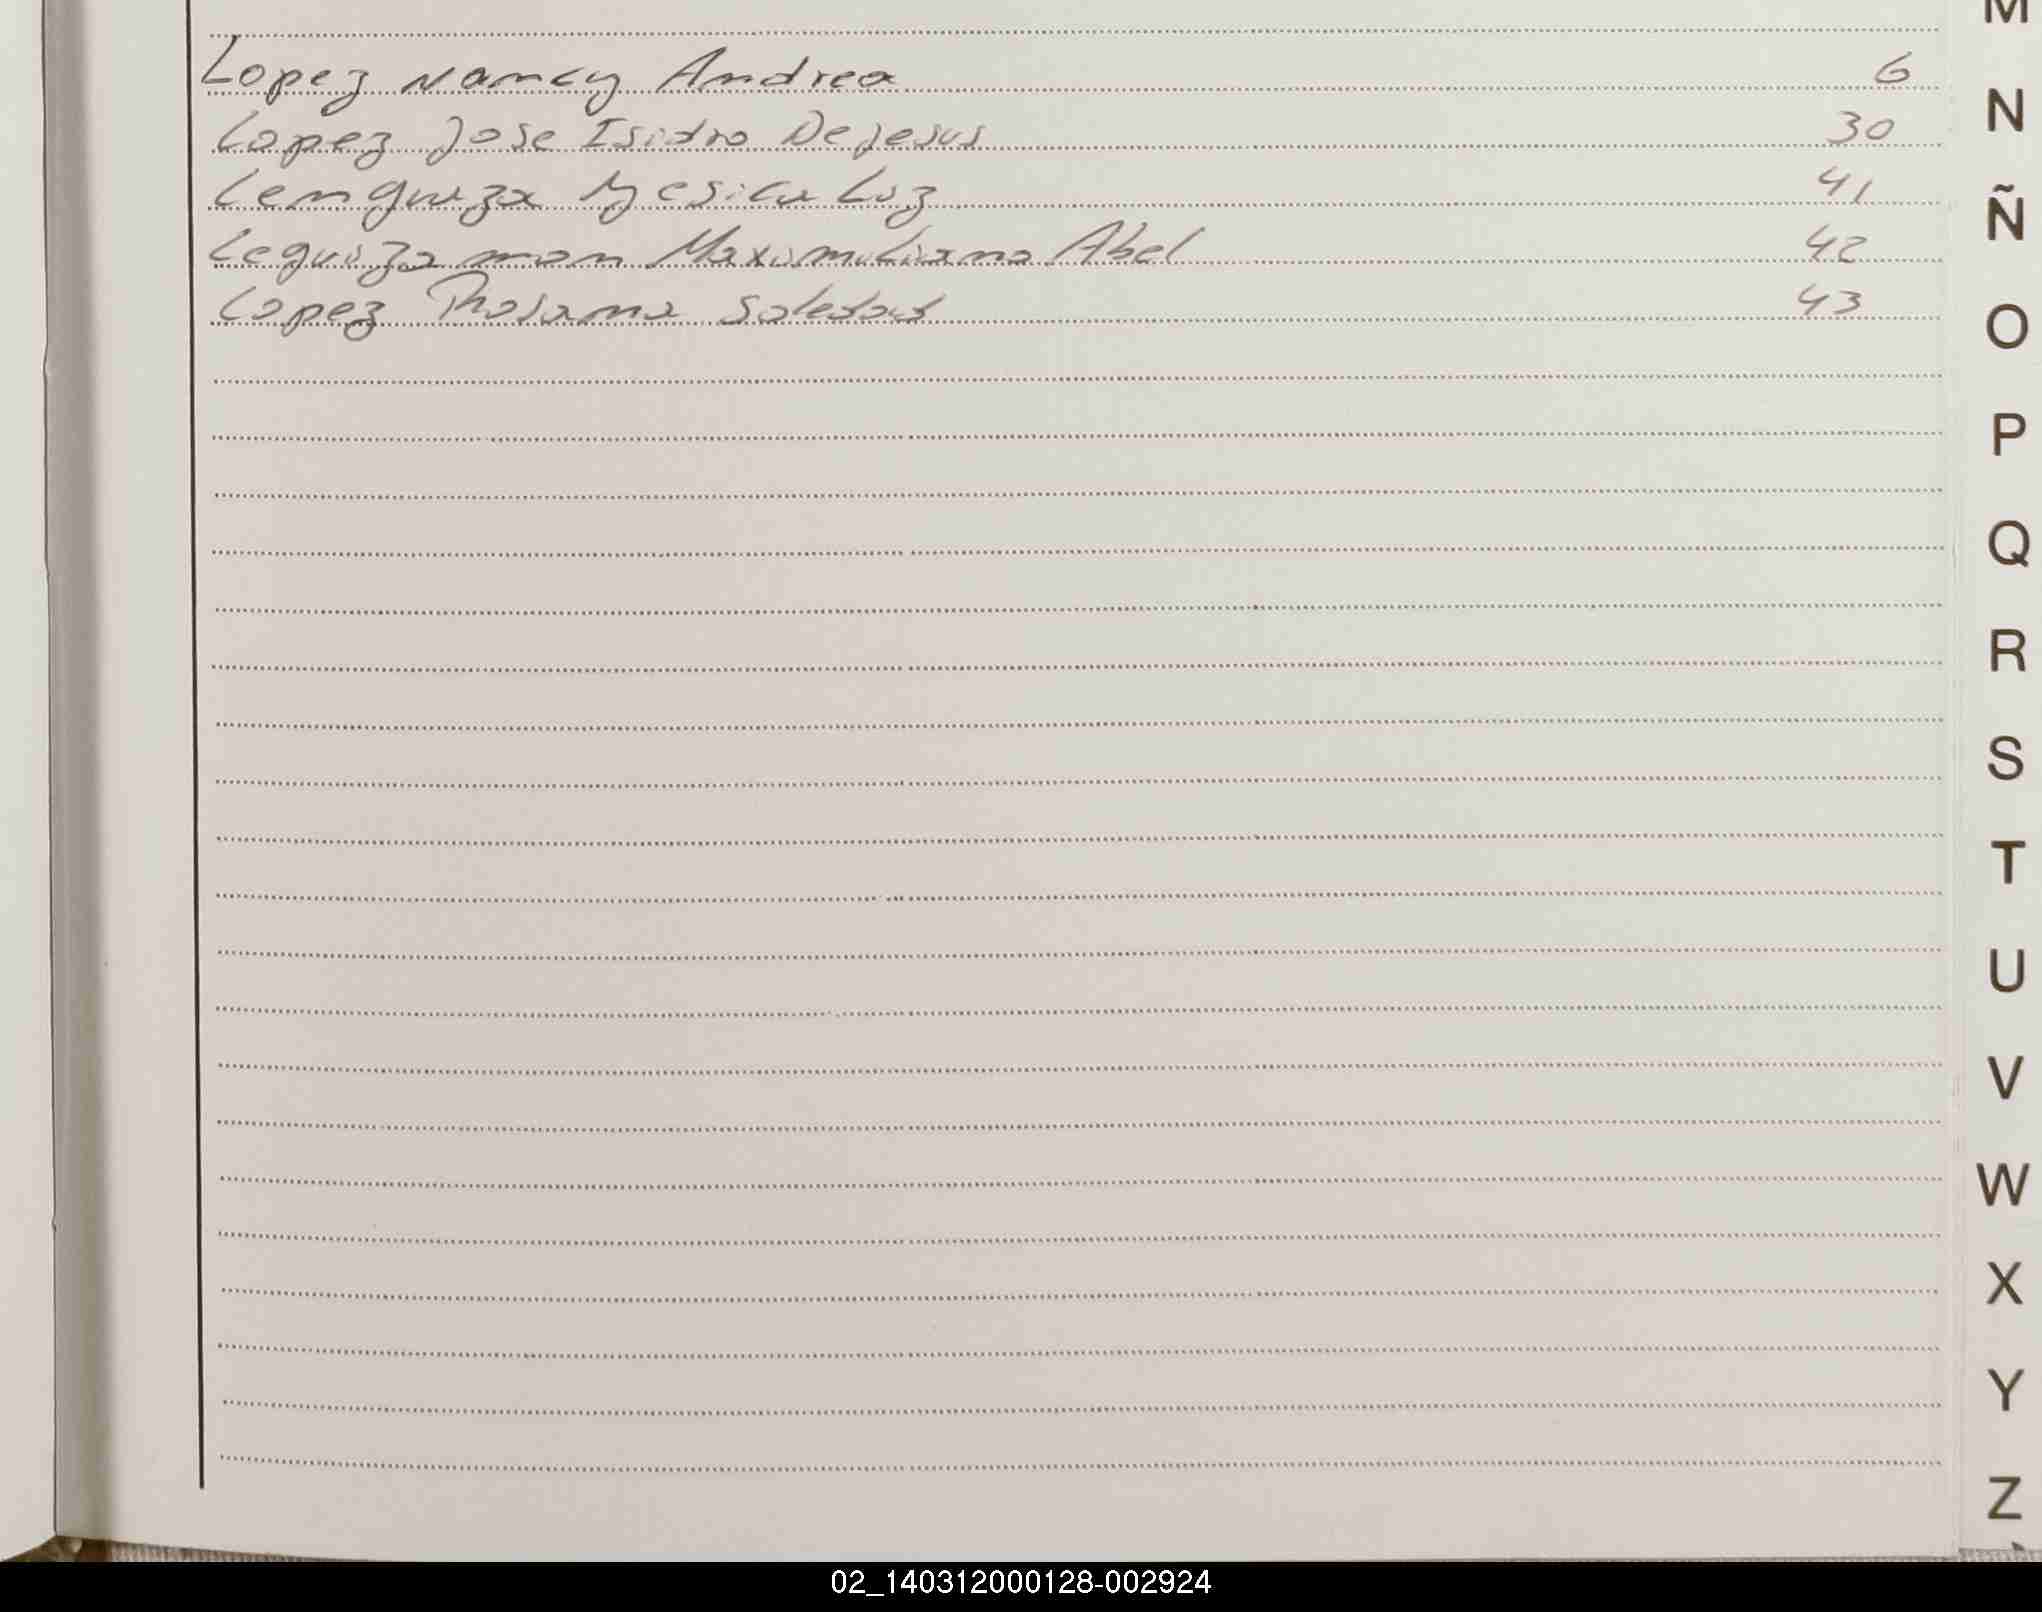 M
Lopez Nancy Andrea 6
N
Lopez Jose Isidro De Jesus 30
Lenguaza Yesica Luz 41
Ñ
Leguizamon Maximiliano Abel 42
Lopez Rosana Soledad 43
O
P
Q
R
S
T
U
V
W
X
Y
Z
02_140312000128-002924